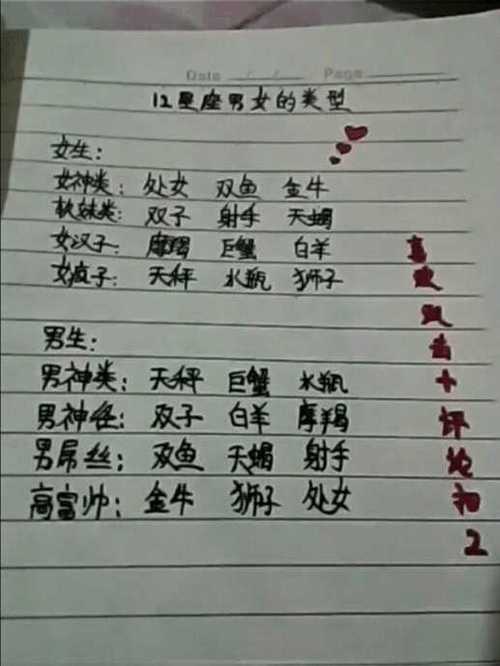 Date / / Page
12星座男女的类型
女生：
女神类：处女 双鱼 金牛
软妹类：双子 射手 天蝎
女汉子：摩羯 巨蟹 白羊
女疯子：天秤 水瓶 狮子
男生：
男神类：天秤 巨蟹 水瓶
男神经：双子 白羊 摩羯
男屌丝：双鱼 天蝎 射手
高富帅：金牛 狮子 处女
喜欢双击十评论扣2